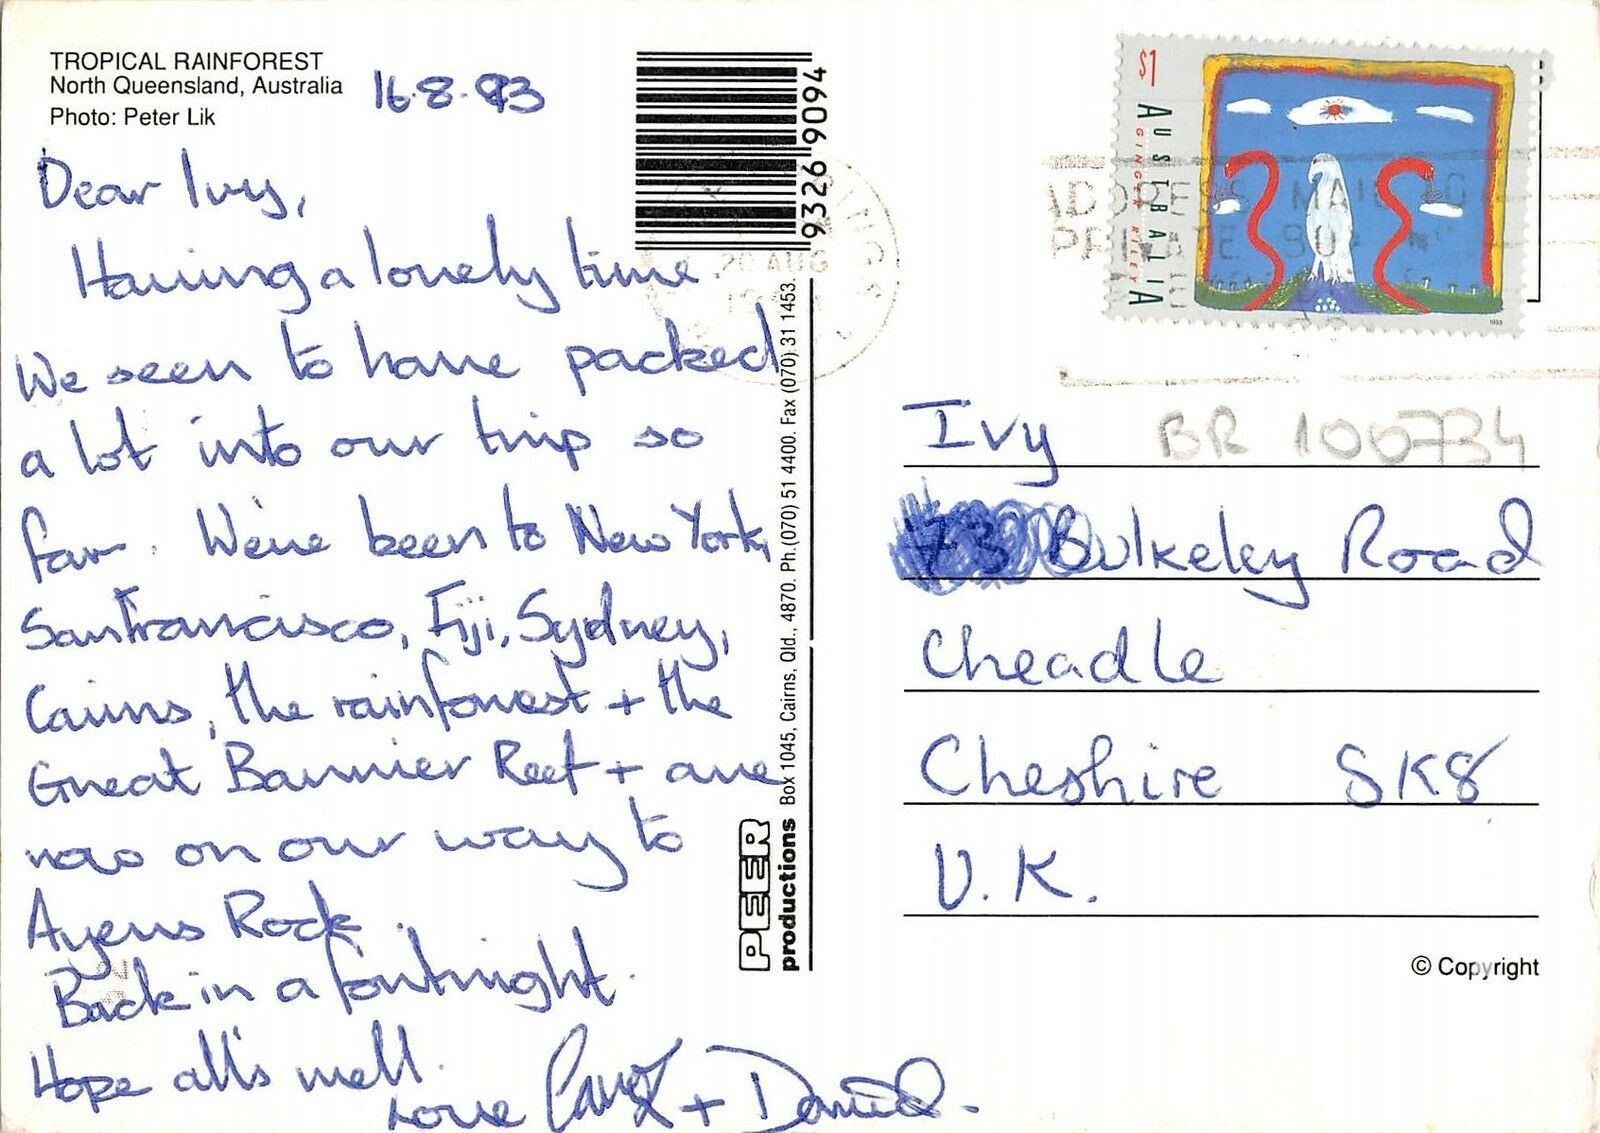 TROPICAL RAINFOREST
North Queensland, Australia
Photo: Peter Lik
16.8.93
Dear Ivy,
Having a lovely time.
We seem to have packed
a lot into our trip so
far. We've been to New York,
SanFrancisco, Fiji, Sydney,
Cairns, the rainforest + the
Great Barrier Reef + are
now on our way to
Ayers Rock.
Back in a fortnight.
Hope all's well.
Love Carol x + Daniel.
9326 9094
PEER
productions Box 1045, Cairns, Qld., 4870. Ph.(070) 51 4400. Fax (070) 31 1453.
20 AUG
$1
AUSTRALIA
GINGER RILEY
1993
ADDRESS MAIL TO
PRIVATE BOX No
Ivy
BR 100734
73 Bulkeley Road
Cheadle
Cheshire SK8
U.K.
© Copyright